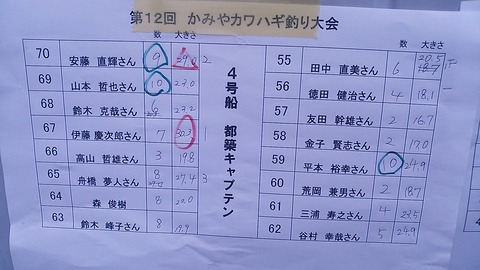 第12回 かみやカワハギ釣り大会
数 大きさ
70 安藤 直輝さん 9 2
69 山本 哲也さん 10 23.0
68 鈴木 克哉さん 6 23.2
67 伊藤 慶次郎さん 7 30.3 1
66 高山 哲雄さん 3 19.8
65 舟橋 夢人さん 8 27.4 3
64 森 俊樹 8 22.0
63 鈴木 峰子さん 8 19.9
4号船 都築キャプテン
数 大きさ
55 田中 直美さん 6 20.5
56 徳田 健治さん 4 18.1
57 友田 幹雄さん 2 16.7
58 金子 賢志さん 2 17.0
59 平本 裕幸さん 10 24.9
60 荒岡 兼男さん 2 18.7
61 三浦 寿之さん 4 23.5
62 谷村 幸哉さん 5 24.9